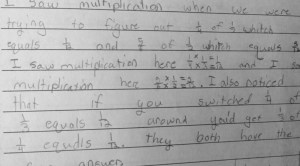 I saw multiplication when we were
trying to figure out 1/4 of 1/3 which
equals 1/12 and of 1/3 which equals
I saw multiplication here and I
multiplication here I also noticed
that if you switched 1/4 of
1/3 equals 1/12 around you'd get 1/3 of
1/4 equals 1/12. they both have the
answer